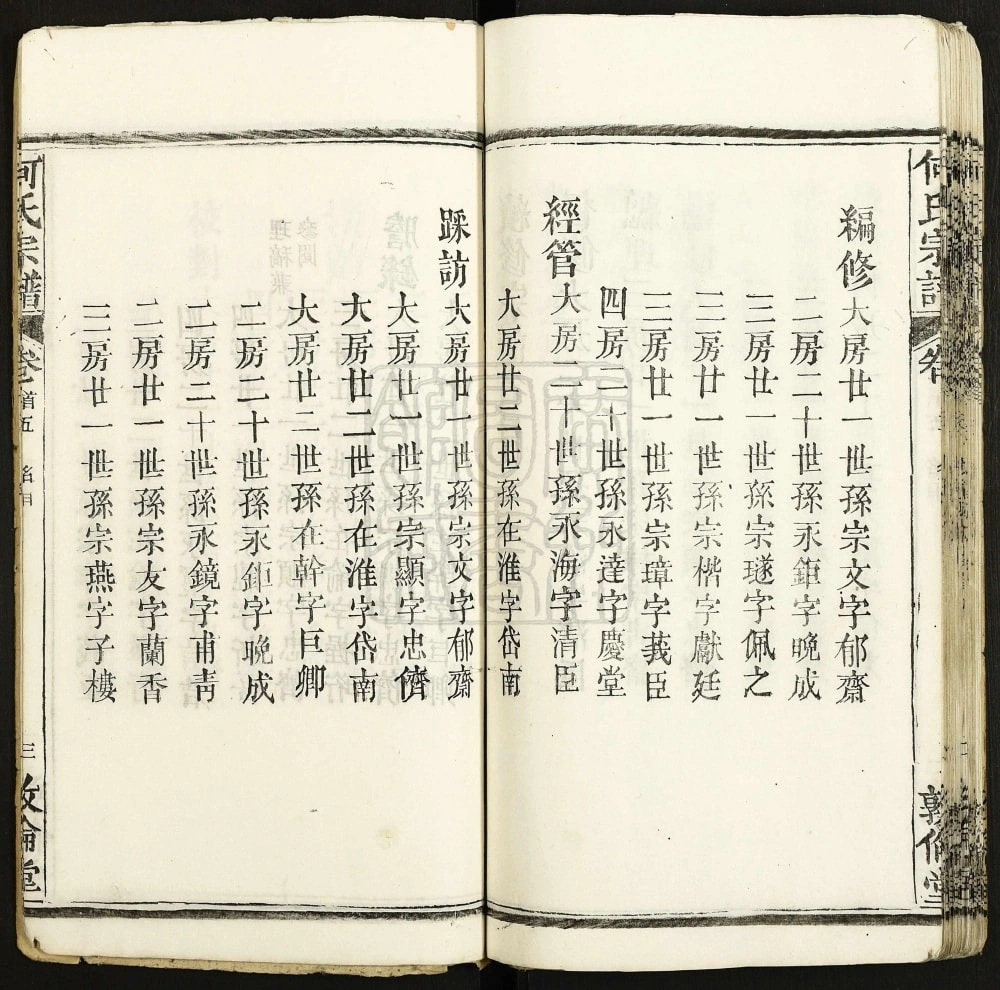 何氏宗譜
編修 大房廿一世孫宗文字郁齋
二房二十世孫永鉅字晚成
三房廿一世孫宗璲字佩之
三房廿一世孫宗楷字獻廷
三房廿一世孫宗璋字義臣
四房二十世孫永達字慶堂
經管 大房二十世孫永海字清臣
大房廿二世孫在淮字岱南
踩訪 大房廿一世孫宗文字郁齋
大房廿一世孫宗顯字忠儕
大房廿二世孫在淮字岱南
大房廿二世孫在幹字巨卿
二房二十世孫永鉅字晚成
二房二十世孫永鏡字甫青
二房廿一世孫宗友字蘭香
三房廿一世孫宗燕字子樓
何氏宗譜
卷首五 名目
三
敦倫堂